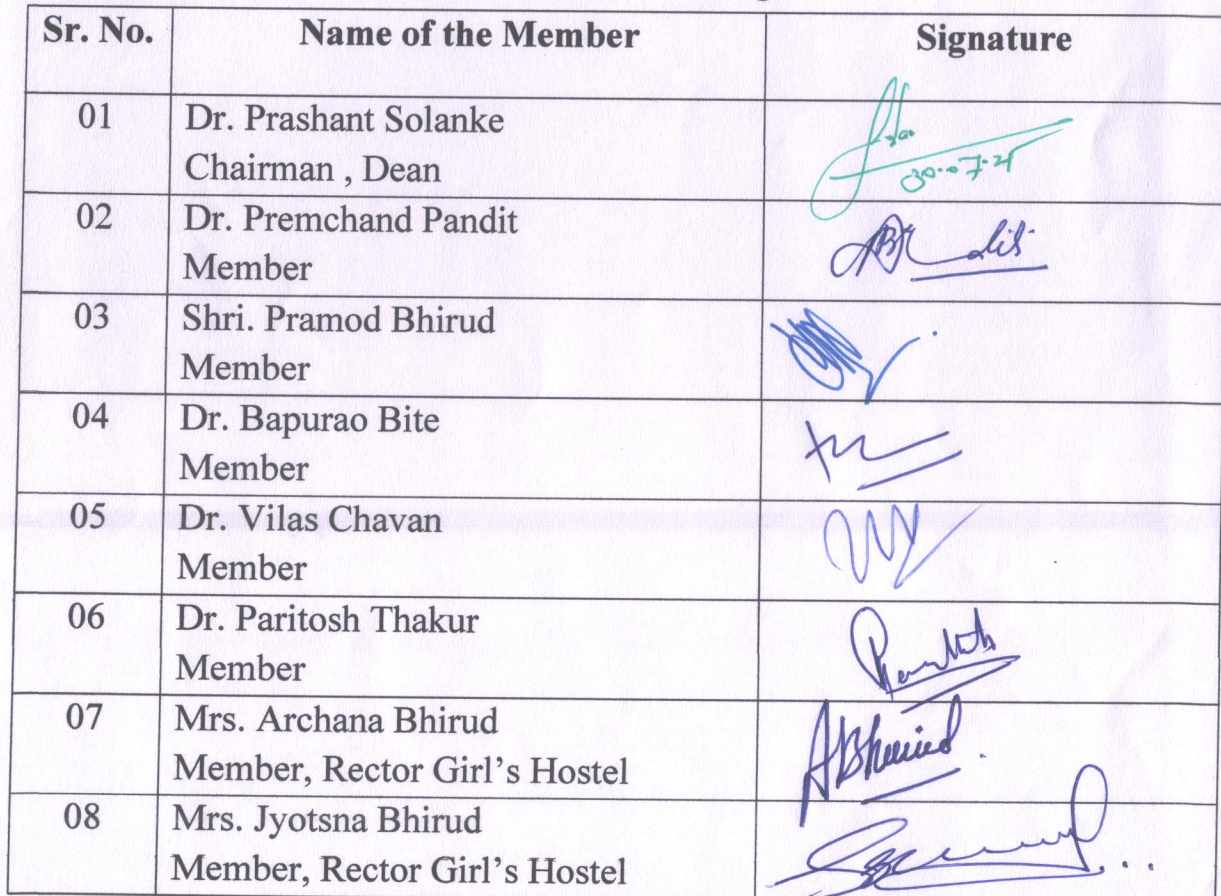 Sr. No. Name of the Member Signature
01 Dr. Prashant Solanke
Chairman , Dean
02 Dr. Premchand Pandit
Member
03 Shri. Pramod Bhirud
Member
04 Dr. Bapurao Bite
Member
05 Dr. Vilas Chavan
Member
06 Dr. Paritosh Thakur
Member
07 Mrs. Archana Bhirud ABhirud
Member, Rector Girl's Hostel
08 Mrs. Jyotsna Bhirud
Member, Rector Girl's Hostel